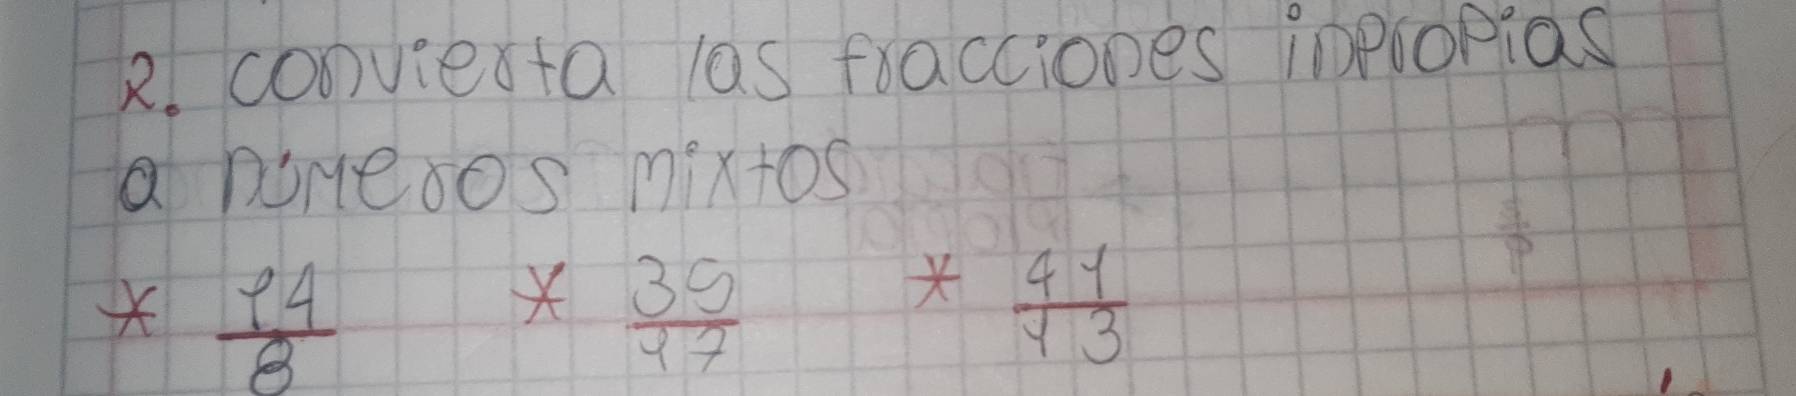 2. convierta las fracciones inpropias
a números mixtos
* 14/8 * 35/17 * 41/13